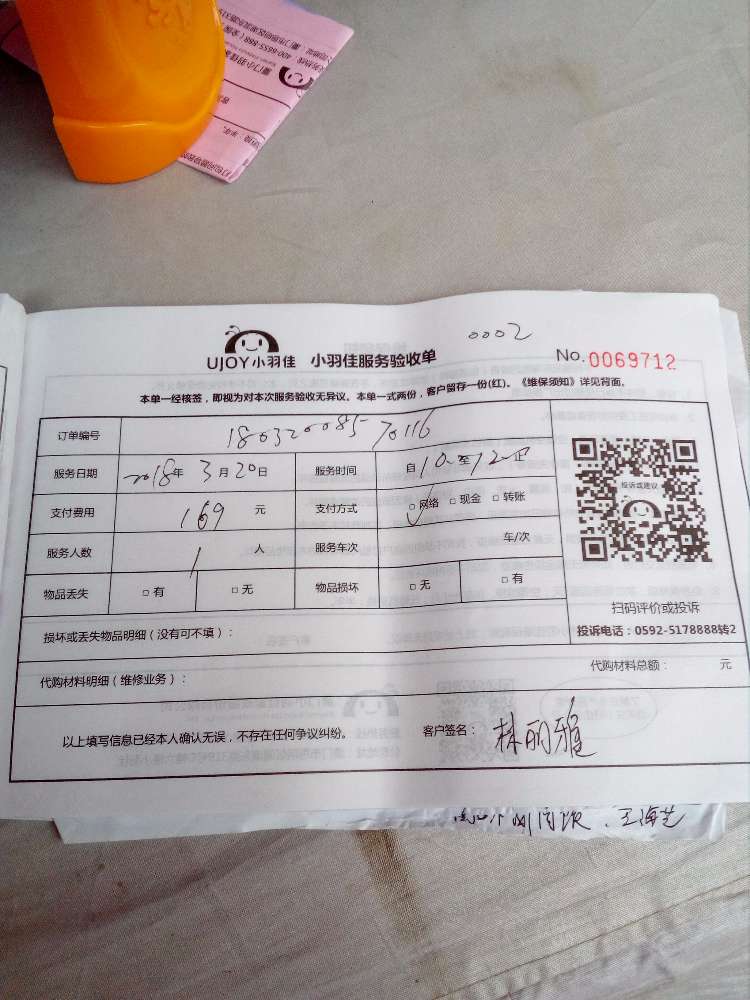 0002
UJOY小羽佳 小羽佳服务验收单 No.0069712
本单一经核签，即视为对本次服务验收无异议。本单一式两份，客户留存一份(红)。《维保须知》详见背面。
订单编号 18032008570116
服务日期 2018年3月20日 服务时间 自10:至12:
支付费用 169 元 支付方式 □网络 □现金 □转账
服务人数 1 人 服务车次 车/次
物品丢失 □有 □无 物品损坏 □无 □有
投诉或建议
扫码评价或投诉
投诉电话：0592-5178888转2
损坏或丢失物品明细（没有可不填）：
代购材料明细（维修业务）： 代购材料总额： 元
以上填写信息已经本人确认无误，不存在任何争议纠纷。 客户签名：林丽雅